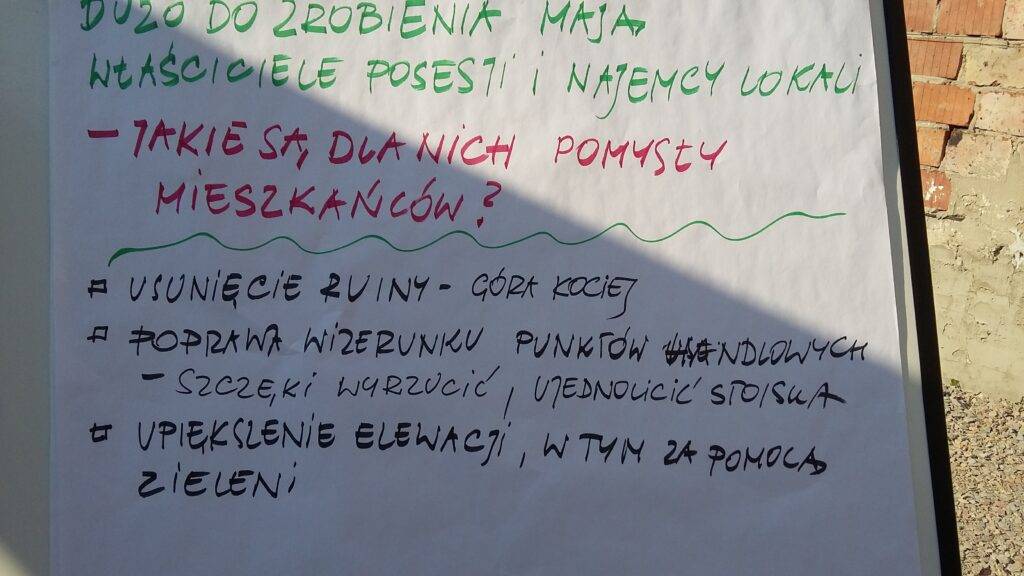 DUŻO DO ZROBIENIA MAJĄ
WŁAŚCICIELE POSESJI I NAJEMCY LOKALI
– JAKIE SĄ DLA NICH POMYSŁY
MIESZKAŃCÓW?
USUNIĘCIE RUINY – GÓRA KOCIEJ
POPRAWA WIZERUNKU PUNKTÓW HANDLOWYCH
– SZCZĘKI WYRZUCIĆ, UJEDNOLICIĆ STOISKA
UPIĘKSZENIE ELEWACJI, W TYM ZA POMOCĄ
ZIELENI